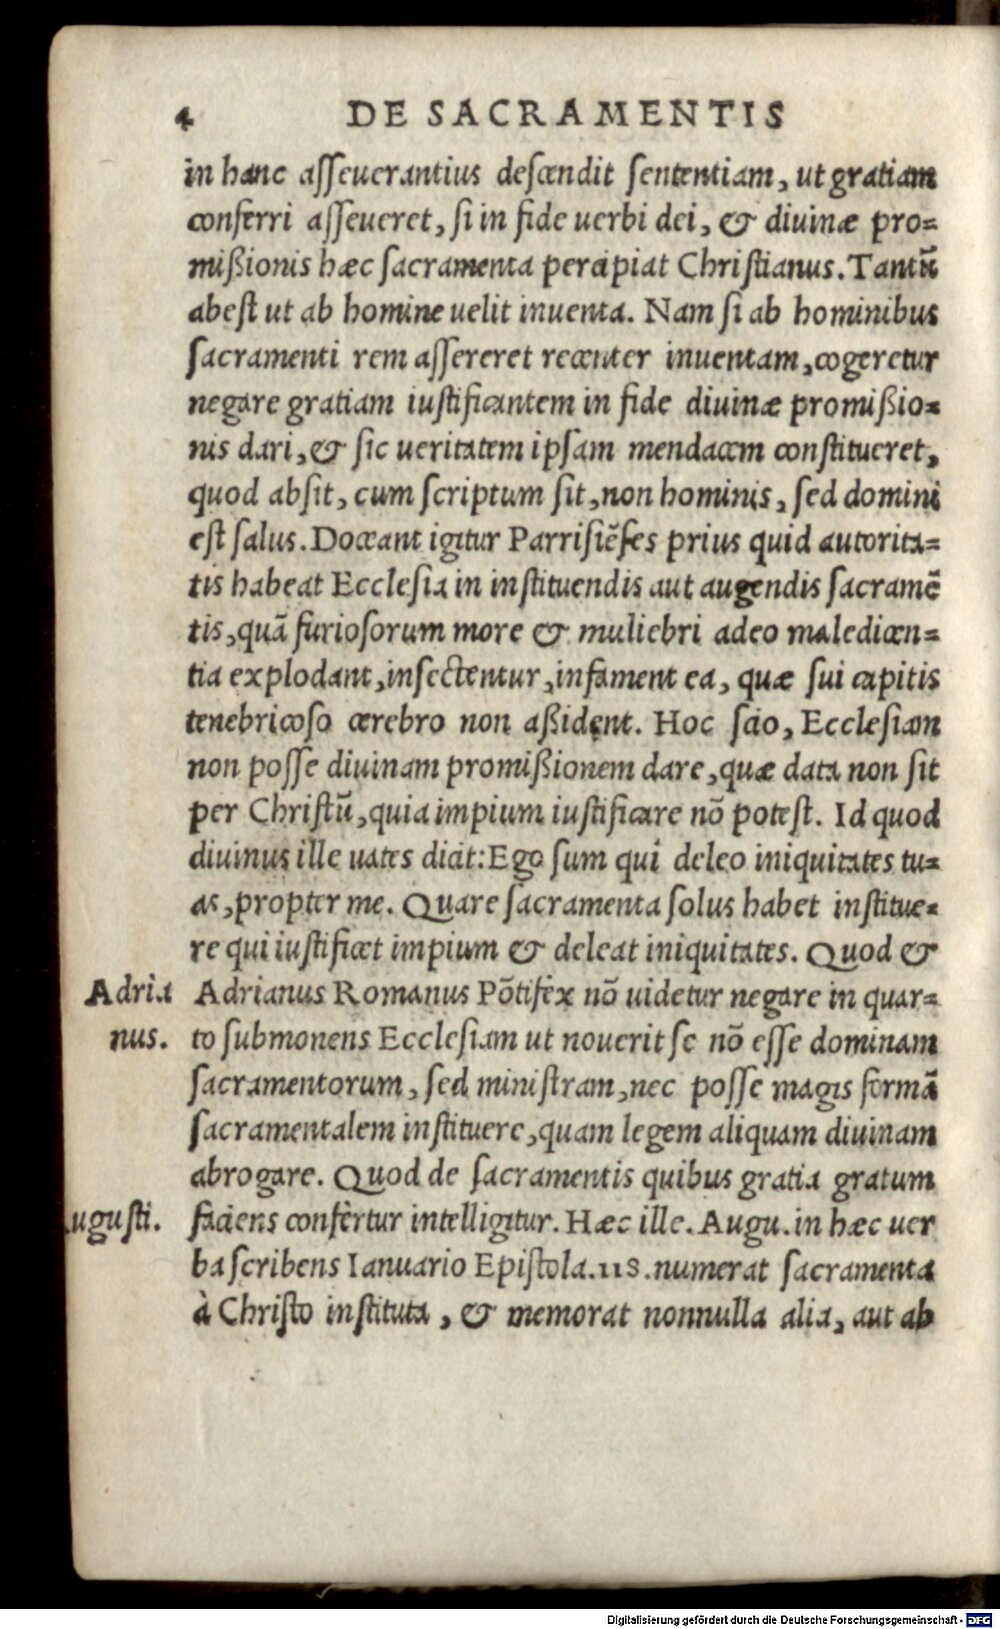 4 DE SACRAMENTIS
in hanc aſſeuerantius deſcendit ſententiam, ut gratiam
conferri aſſeueret, ſi in fide uerbi dei, & diuinæ pro=
mißionis hæc ſacramenta percipiat Chriſtianus. Tantū
abeſt ut ab homine uelit inuenta. Nam ſi ab hominibus
ſacramenti rem aſſereret recenter inuentam, cogeretur
negare gratiam iuſtificantem in fide diuinæ promißio=
nis dari, & ſic ueritatem ipſam mendacem conſtitueret,
quod abſit, cum ſcriptum ſit, non hominis, ſed domini
eſt ſalus. Doceant igitur Parriſiēſes prius quid autorita=
tis habeat Eccleſia in inſtituendis aut augendis ſacramē
tis, quā furioſorum more & muliebri adeo maledicen=
tia explodant, inſectentur, infament ea, quæ ſui capitis
tenebricoſo cerebro non aßident. Hoc ſcio, Eccleſiam
non poſſe diuinam promißionem dare, quæ data non ſit
per Chriſtū, quia impium iuſtificare nō poteſt. Id quod
diuinus ille uates dicit: Ego ſum qui deleo iniquitates tu=
as, propter me. Quare ſacramenta ſolus habet inſtitue=
re qui iuſtificet impium & deleat iniquitates. Quod &
Adria Adrianus Romanus Pōtifex nō uidetur negare in quar=
nus. to ſubmonens Eccleſiam ut nouerit ſe nō eſſe dominam
ſacramentorum, ſed miniſtram, nec poſſe magis formā
ſacramentalem inſtituere, quam legem aliquam diuinam
abrogare. Quod de ſacramentis quibus gratia gratum
uguſti. faciens confertur intelligitur. Hæc ille. Augu. in hæc uer
ba ſcribens Ianuario Epiſtola. 118. numerat ſacramenta
à Chriſto inſtituta, & memorat nonnulla alia, aut ab
Digitalisierung gefördert durch die Deutsche Forschungsgemeinschaft - DFG